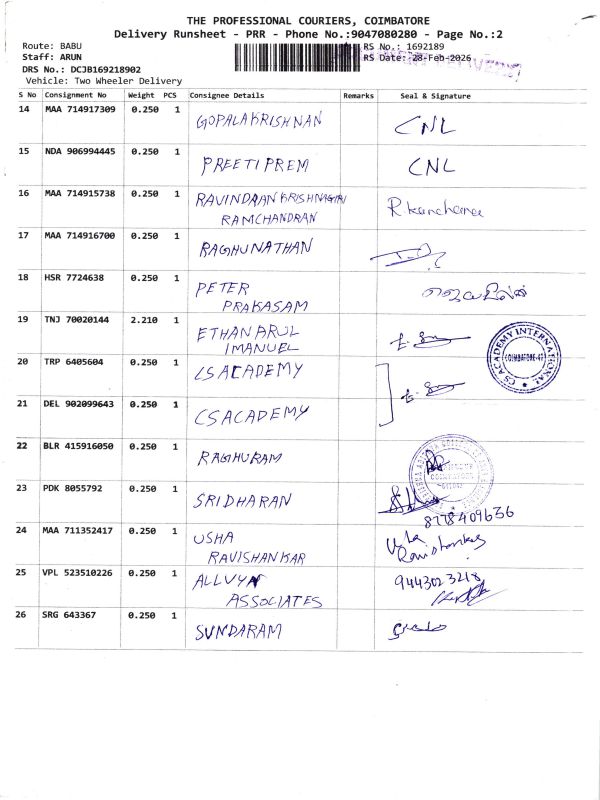 THE PROFESSIONAL COURIERS, COIMBATORE
Delivery Runsheet - PRR - Phone No.:9047080280 - Page No.:2
Route: BABU
RS No.: 1692189
Staff: ARUN
RS Date: 28-Feb-2026
DRS No.: DCJB169218902
Vehicle: Two Wheeler Delivery
S No Consignment No Weight PCS Consignee Details Remarks Seal & Signature
14 MAA 714917309 0.250 1 GOPALAKRISHNAN CNL
15 NDA 906994445 0.250 1 PREETI PREM CNL
16 MAA 714915738 0.250 1 RAVINDAAN KRISHNAGIRI
RAMCHANDRAN
17 MAA 714916700 0.250 1 RAGHUNATHAN
18 HSR 7724638 0.250 1 PETER
PRAKASAM
19 TNJ 70020144 2.210 1 ETHAN ARUL
IMANUEL
CS ACADEMY INTERNATIONAL
COIMBATORE-47
20 TRP 6405604 0.250 1 CS ACADEMY
21 DEL 902099643 0.250 1 CSACADEMY
22 BLR 415916050 0.250 1 RAGHURAM
23 PDK 8055792 0.250 1 SRIDHARAN
8778409636
24 MAA 711352417 0.250 1 USHA
RAVISHANKAR
Usha
Ravishankar
25 VPL 523510226 0.250 1 ALLVYN
ASSOCIATES
9443023218
26 SRG 643367 0.250 1 SUNDARAM